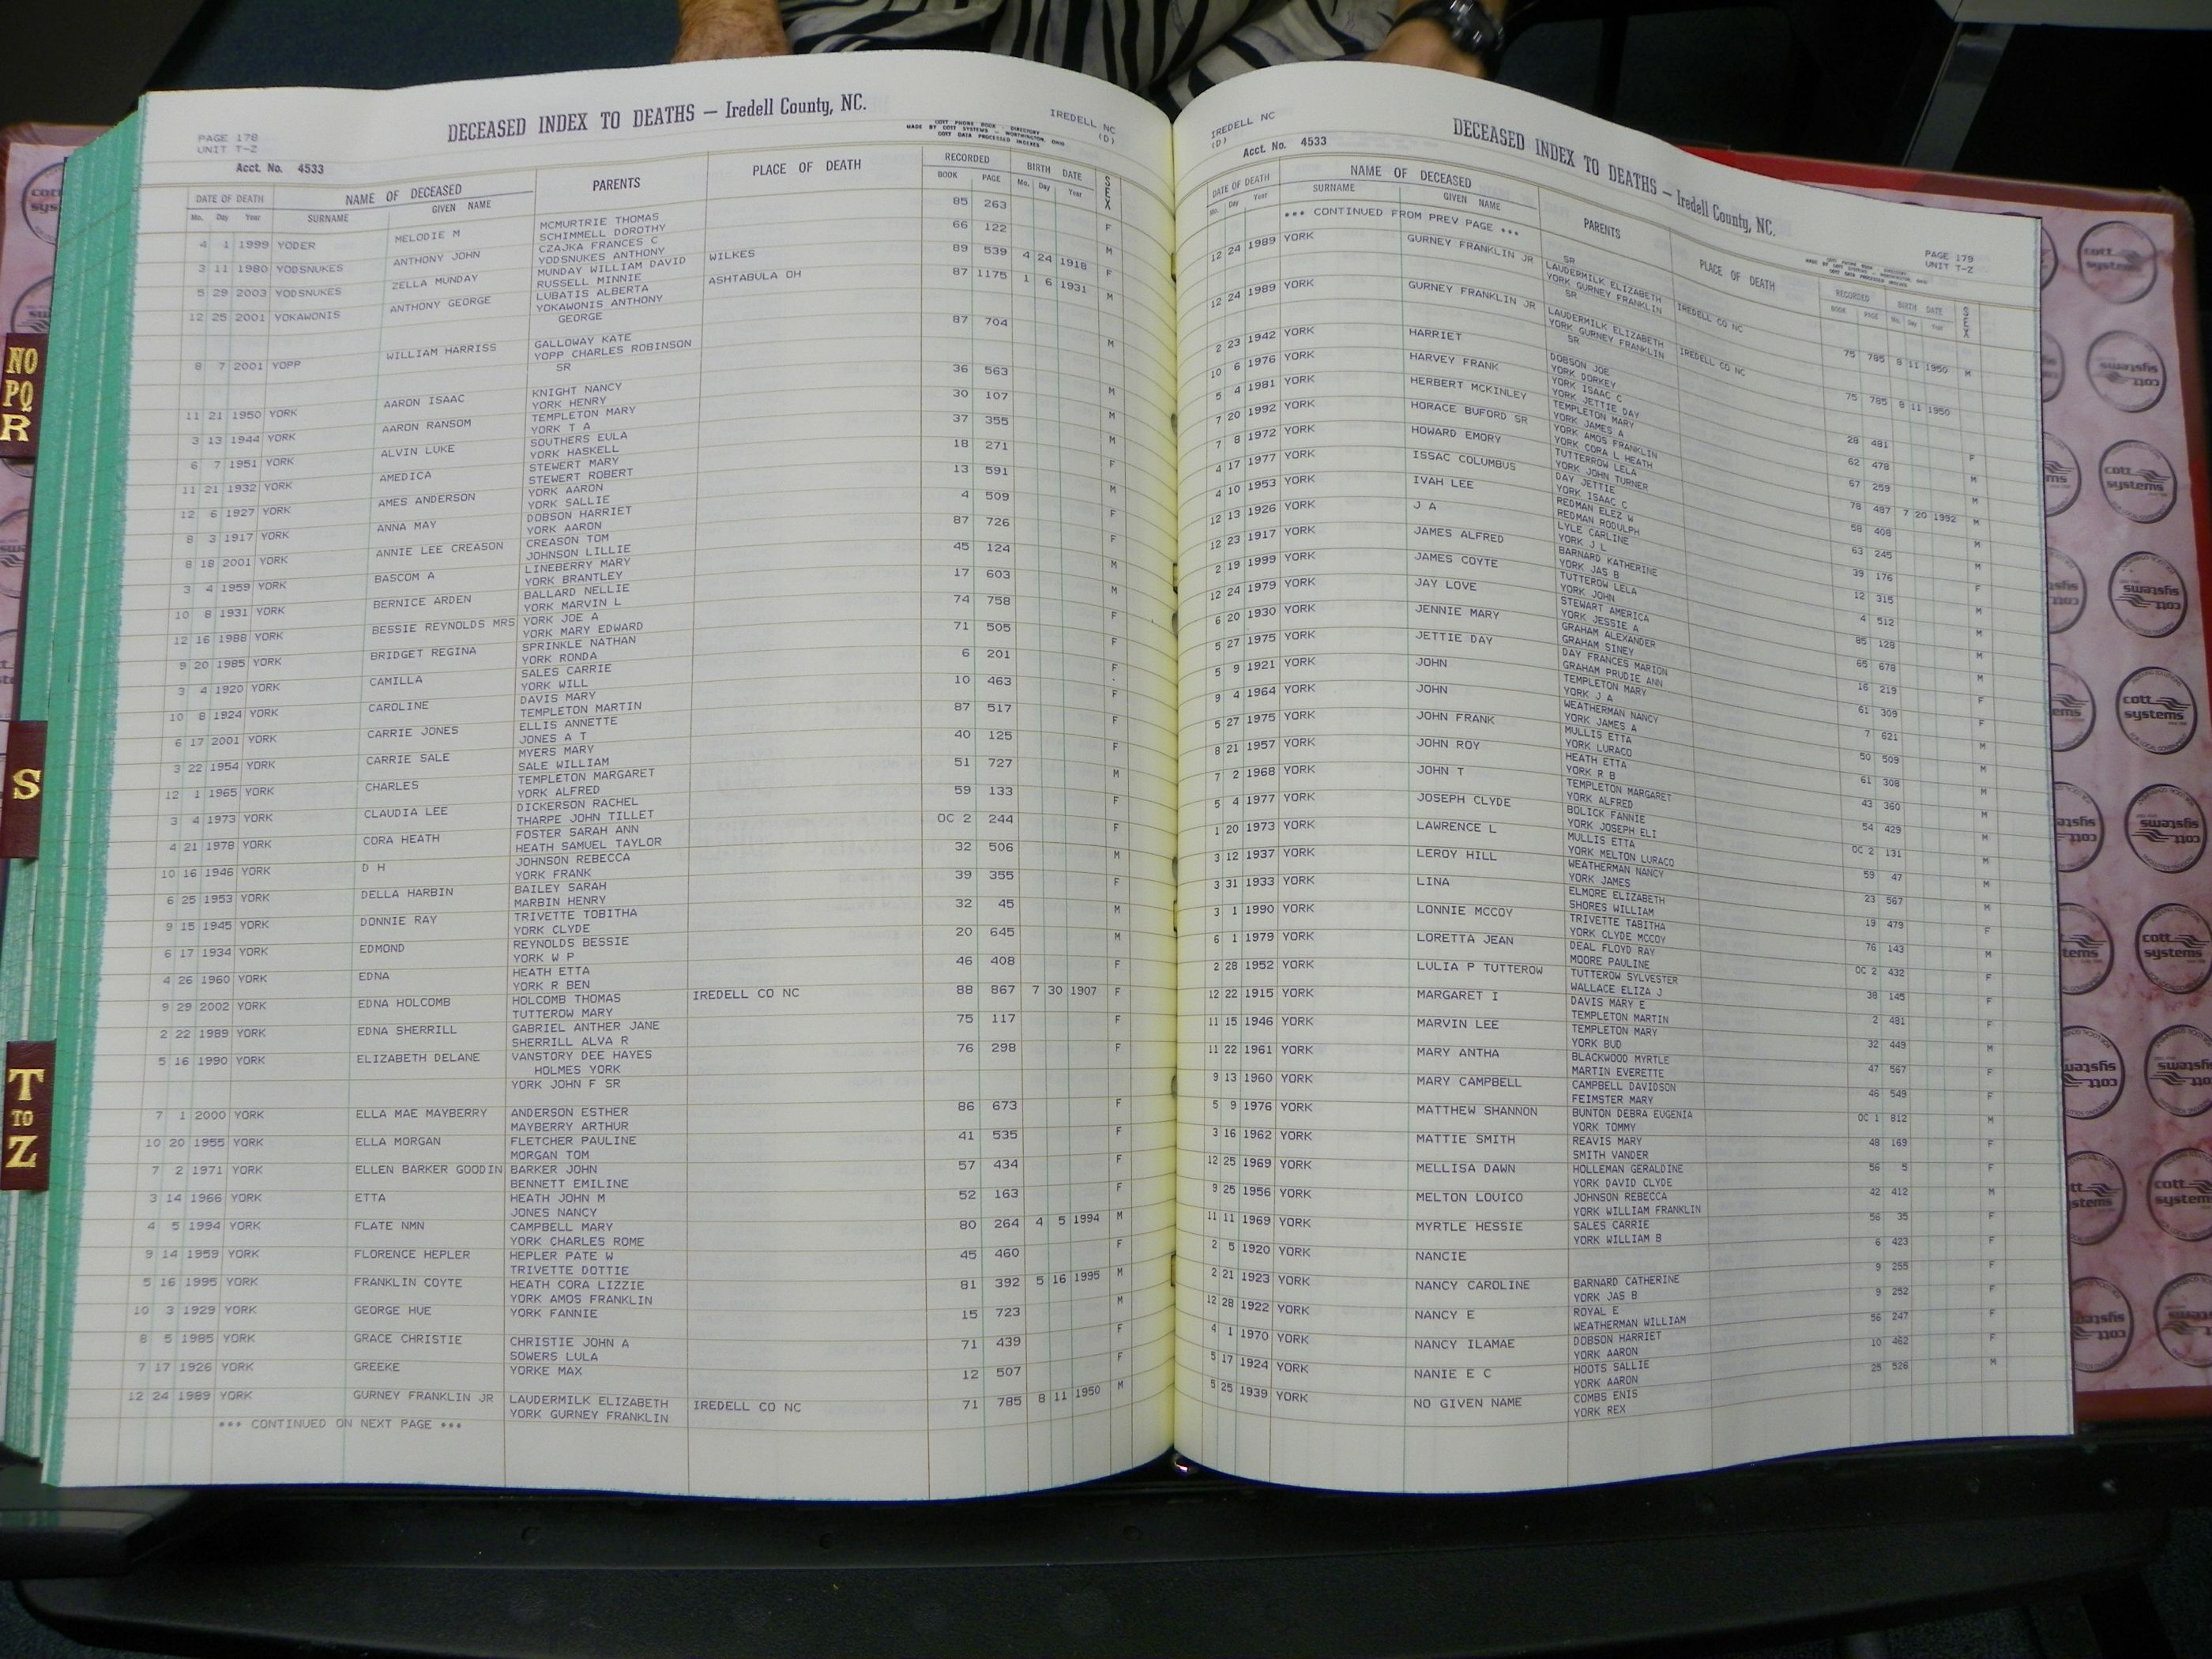 PAGE 178
UNIT T-Z
DECEASED INDEX TO DEATHS — Iredell County, NC.
COTT PHONE BOOK - DIRECTORY
MADE BY COTT SYSTEMS - WORTHINGTON, OHIO
COTT DATA PROCESSED INDEXES
IREDELL NC
(D)
Acct. No. 4533
DATE OF DEATH NAME OF DECEASED PARENTS PLACE OF DEATH RECORDED BIRTH DATE SEX
Mo. Day Year SURNAME GIVEN NAME BOOK PAGE Mo. Day Year
4 1 1999 YODER MELODIE M MCMURTRIE THOMAS 85 263 F
SCHIMMELL DOROTHY
3 11 1980 YODSNUKES ANTHONY JOHN CZAJKA FRANCES C 66 122 M
YODSNUKES ANTHONY
5 29 2003 YODSNUKES ZELLA MUNDAY MUNDAY WILLIAM DAVID WILKES 89 539 4 24 1918 F
RUSSELL MINNIE
12 25 2001 YOKAWONIS ANTHONY GEORGE LUBATIS ALBERTA ASHTABULA OH 87 1175 1 6 1931 M
YOKAWONIS ANTHONY
GEORGE
8 7 2001 YOPP WILLIAM HARRISS GALLOWAY KATE 87 704 M
YOPP CHARLES ROBINSON
SR
11 21 1950 YORK AARON ISAAC KNIGHT NANCY 36 563 M
YORK HENRY
3 13 1944 YORK AARON RANSOM TEMPLETON MARY 30 107 M
YORK T A
6 7 1951 YORK ALVIN LUKE SOUTHERS EULA 37 355 M
YORK HASKELL
11 21 1932 YORK AMEDICA STEWERT MARY 18 271 F
STEWERT ROBERT
12 6 1927 YORK AMES ANDERSON YORK AARON 13 591 M
YORK SALLIE
8 3 1917 YORK ANNA MAY DOBSON HARRIET 4 509 F
YORK AARON
8 18 2001 YORK ANNIE LEE CREASON CREASON TOM 87 726 F
JOHNSON LILLIE
3 4 1959 YORK BASCOM A LINEBERRY MARY 45 124 M
YORK BRANTLEY
10 8 1931 YORK BERNICE ARDEN BALLARD NELLIE 17 603 M
YORK MARVIN L
12 16 1988 YORK BESSIE REYNOLDS MRS YORK JOE A 74 758 F
YORK MARY EDWARD
9 20 1985 YORK BRIDGET REGINA SPRINKLE NATHAN 71 505 F
YORK RONDA
3 4 1920 YORK CAMILLA SALES CARRIE 6 201 F
YORK WILL
10 8 1924 YORK CAROLINE DAVIS MARY 10 463 F
TEMPLETON MARTIN
6 17 2001 YORK CARRIE JONES ELLIS ANNETTE 87 517 F
JONES A T
3 22 1954 YORK CARRIE SALE MYERS MARY 40 125 F
SALE WILLIAM
12 1 1965 YORK CHARLES TEMPLETON MARGARET 51 727 M
YORK ALFRED
3 4 1973 YORK CLAUDIA LEE DICKERSON RACHEL 59 133 F
THARPE JOHN TILLET
4 21 1978 YORK CORA HEATH FOSTER SARAH ANN OC 2 244 F
HEATH SAMUEL TAYLOR
10 16 1946 YORK D H JOHNSON REBECCA 32 506 M
YORK FRANK
6 25 1953 YORK DELLA HARBIN BAILEY SARAH 39 355 F
MARBIN HENRY
9 15 1945 YORK DONNIE RAY TRIVETTE TOBITHA 32 45 M
YORK CLYDE
6 17 1934 YORK EDMOND REYNOLDS BESSIE 20 645 M
YORK W P
4 26 1960 YORK EDNA HEATH ETTA 46 408 F
YORK R BEN
9 29 2002 YORK EDNA HOLCOMB HOLCOMB THOMAS IREDELL CO NC 88 867 7 30 1907 F
TUTTEROW MARY
2 22 1989 YORK EDNA SHERRILL GABRIEL ANTHER JANE 75 117 F
SHERRILL ALVA R
5 16 1990 YORK ELIZABETH DELANE VANSTORY DEE HAYES 76 298 F
HOLMES YORK
YORK JOHN F SR
7 1 2000 YORK ELLA MAE MAYBERRY ANDERSON ESTHER 86 673 F
MAYBERRY ARTHUR
10 20 1955 YORK ELLA MORGAN FLETCHER PAULINE 41 535 F
MORGAN TOM
7 2 1971 YORK ELLEN BARKER GOODIN BARKER JOHN 57 434 F
BENNETT EMILINE
3 14 1966 YORK ETTA HEATH JOHN M 52 163 F
JONES NANCY
4 5 1994 YORK FLATE NMN CAMPBELL MARY 80 264 4 5 1994 M
YORK CHARLES ROME
9 14 1959 YORK FLORENCE HEPLER HEPLER PATE W 45 460 F
TRIVETTE DOTTIE
5 16 1995 YORK FRANKLIN COYTE HEATH CORA LIZZIE 81 392 5 16 1995 M
YORK AMOS FRANKLIN
10 3 1929 YORK GEORGE HUE YORK FANNIE 15 723 M
8 5 1985 YORK GRACE CHRISTIE CHRISTIE JOHN A 71 439 F
SOWERS LULA
7 17 1926 YORK GREEKE YORKE MAX 12 507 F
12 24 1989 YORK GURNEY FRANKLIN JR LAUDERMILK ELIZABETH IREDELL CO NC 71 785 8 11 1950 M
YORK GURNEY FRANKLIN
*** CONTINUED ON NEXT PAGE ***
IREDELL NC
(D)
DECEASED INDEX TO DEATHS — Iredell County, NC.
PAGE 179
UNIT T-Z
Acct. No. 4533
DATE OF DEATH NAME OF DECEASED PARENTS PLACE OF DEATH RECORDED BIRTH DATE SEX
Mo. Day Year SURNAME GIVEN NAME BOOK PAGE Mo. Day Year
*** CONTINUED FROM PREV PAGE ***
SR
12 24 1989 YORK GURNEY FRANKLIN JR LAUDERMILK ELIZABETH IREDELL CO NC 75 785 8 11 1950 M
YORK GURNEY FRANKLIN
SR
12 24 1989 YORK GURNEY FRANKLIN JR LAUDERMILK ELIZABETH IREDELL CO NC 75 785 8 11 1950
YORK GURNEY FRANKLIN
SR
2 23 1942 YORK HARRIET DOBSON JOE 28 481 F
YORK DORKEY
10 6 1976 YORK HARVEY FRANK YORK ISAAC C 62 478 M
YORK JETTIE DAY
5 4 1981 YORK HERBERT MCKINLEY TEMPLETON MARY 67 259 M
YORK JAMES A
7 20 1992 YORK HORACE BUFORD SR YORK AMOS FRANKLIN 78 487 7 20 1992 M
YORK CORA L HEATH
7 8 1972 YORK HOWARD EMORY TUTTERROW LELA 58 408 M
YORK JOHN TURNER
4 17 1977 YORK ISSAC COLUMBUS DAY JETTIE 63 245 M
YORK ISAAC C
4 10 1953 YORK IVAH LEE REDMAN ELEZ W 39 176 F
REDMAN RODULPH
12 13 1926 YORK J A LYLE CARLINE 12 315 M
YORK J L
12 23 1917 YORK JAMES ALFRED BARNARD KATHERINE 4 512 M
YORK JAS B
2 19 1999 YORK JAMES COYTE TUTTEROW LELA 85 128 M
YORK JOHN
12 24 1979 YORK JAY LOVE STEWART AMERICA 65 678 M
YORK JESSIE A
6 20 1930 YORK JENNIE MARY GRAHAM ALEXANDER 16 219 F
GRAHAM SINEY
5 27 1975 YORK JETTIE DAY DAY FRANCES MARION 61 309 F
GRAHAM PRUDIE ANN
5 9 1921 YORK JOHN TEMPLETON MARY 7 621 M
YORK J A
9 4 1964 YORK JOHN WEATHERMAN NANCY 50 509 M
YORK JAMES A
5 27 1975 YORK JOHN FRANK MULLIS ETTA 61 308 M
YORK LURACO
8 21 1957 YORK JOHN ROY HEATH ETTA 43 360 M
YORK R B
7 2 1968 YORK JOHN T TEMPLETON MARGARET 54 429 M
YORK ALFRED
5 4 1977 YORK JOSEPH CLYDE BOLICK FANNIE OC 2 131 M
YORK JOSEPH ELI
1 20 1973 YORK LAWRENCE L MULLIS ETTA 59 47 M
YORK MELTON LURACO
3 12 1937 YORK LEROY HILL WEATHERMAN NANCY 23 567 M
YORK JAMES
3 31 1933 YORK LINA ELMORE ELIZABETH 19 479 F
SHORES WILLIAM
3 1 1990 YORK LONNIE MCCOY TRIVETTE TABITHA 76 143 M
YORK CLYDE MCCOY
6 1 1979 YORK LORETTA JEAN DEAL FLOYD RAY OC 2 432 F
MOORE PAULINE
2 28 1952 YORK LULIA P TUTTEROW TUTTEROW SYLVESTER 38 145 F
WALLACE ELIZA J
12 22 1915 YORK MARGARET I DAVIS MARY E 2 481 F
TEMPLETON MARTIN
11 15 1946 YORK MARVIN LEE TEMPLETON MARY 32 449 M
YORK BUD
11 22 1961 YORK MARY ANTHA BLACKWOOD MYRTLE 47 567 F
MARTIN EVERETTE
9 13 1960 YORK MARY CAMPBELL CAMPBELL DAVIDSON 46 549 F
FEIMSTER MARY
5 9 1976 YORK MATTHEW SHANNON BUNTON DEBRA EUGENIA OC 1 812 M
YORK TOMMY
3 16 1962 YORK MATTIE SMITH REAVIS MARY 48 169 F
SMITH VANDER
12 25 1969 YORK MELLISA DAWN HOLLEMAN GERALDINE 56 5 F
YORK DAVID CLYDE
9 25 1956 YORK MELTON LOUICO JOHNSON REBECCA 42 412 M
YORK WILLIAM FRANKLIN
11 11 1969 YORK MYRTLE HESSIE SALES CARRIE 56 35 F
YORK WILLIAM B
2 5 1920 YORK NANCIE 6 423 F
2 21 1923 YORK NANCY CAROLINE BARNARD CATHERINE 9 255 F
YORK JAS B
12 28 1922 YORK NANCY E ROYAL E 9 252 F
WEATHERMAN WILLIAM
4 1 1970 YORK NANCY ILAMAE DOBSON HARRIET 56 247 F
YORK AARON
5 17 1924 YORK NANIE E C HOOTS SALLIE 10 462 F
YORK AARON
5 25 1939 YORK NO GIVEN NAME COMBS ENIS 25 526 M
YORK REX
NO
PQ
R
S
T
TO
Z
cott
systems